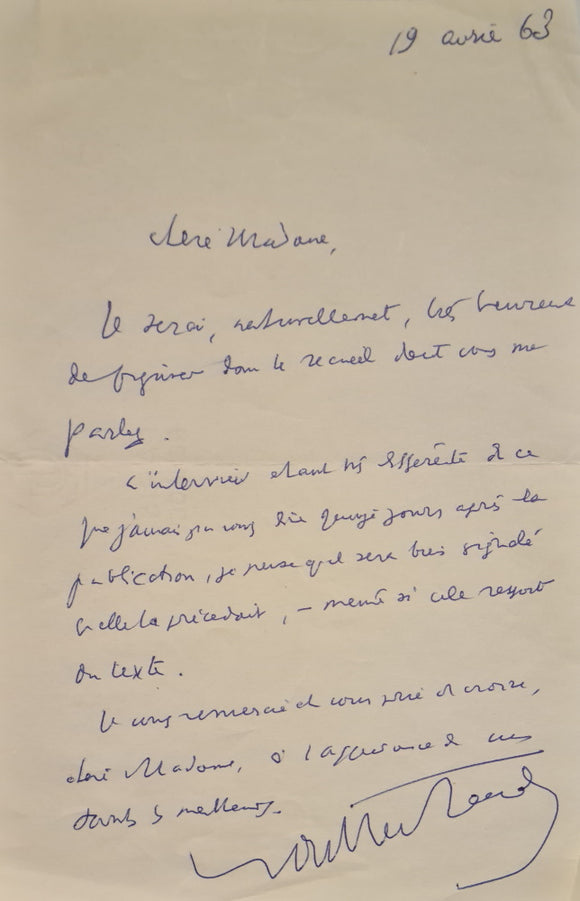 19 avril 63
Chère Madame,
Je serai, naturellement, très heureux
de figurer dans le recueil dont vous me
parlez.
L'interview étant très différente de ce
que j'aurais pu vous dire quinze jours après la
publication, je pense qu'il sera bien signalé
qu'elle la précédait, – même si cela ressort
du texte.
Je vous remercie et vous prie de croire,
chère Madame, à l'assurance de mes
sentiments les meilleurs.